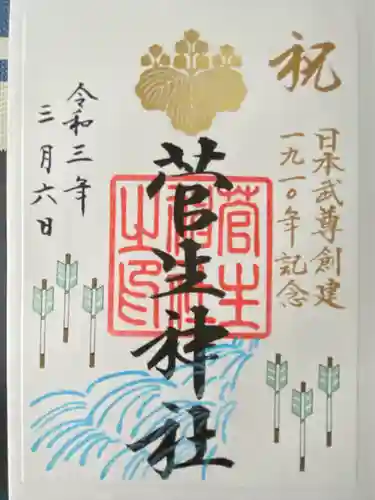 祝
日本武尊創建
一九一〇年記念
菅生神社
菅生
神社
之印
令和三年
三月六日